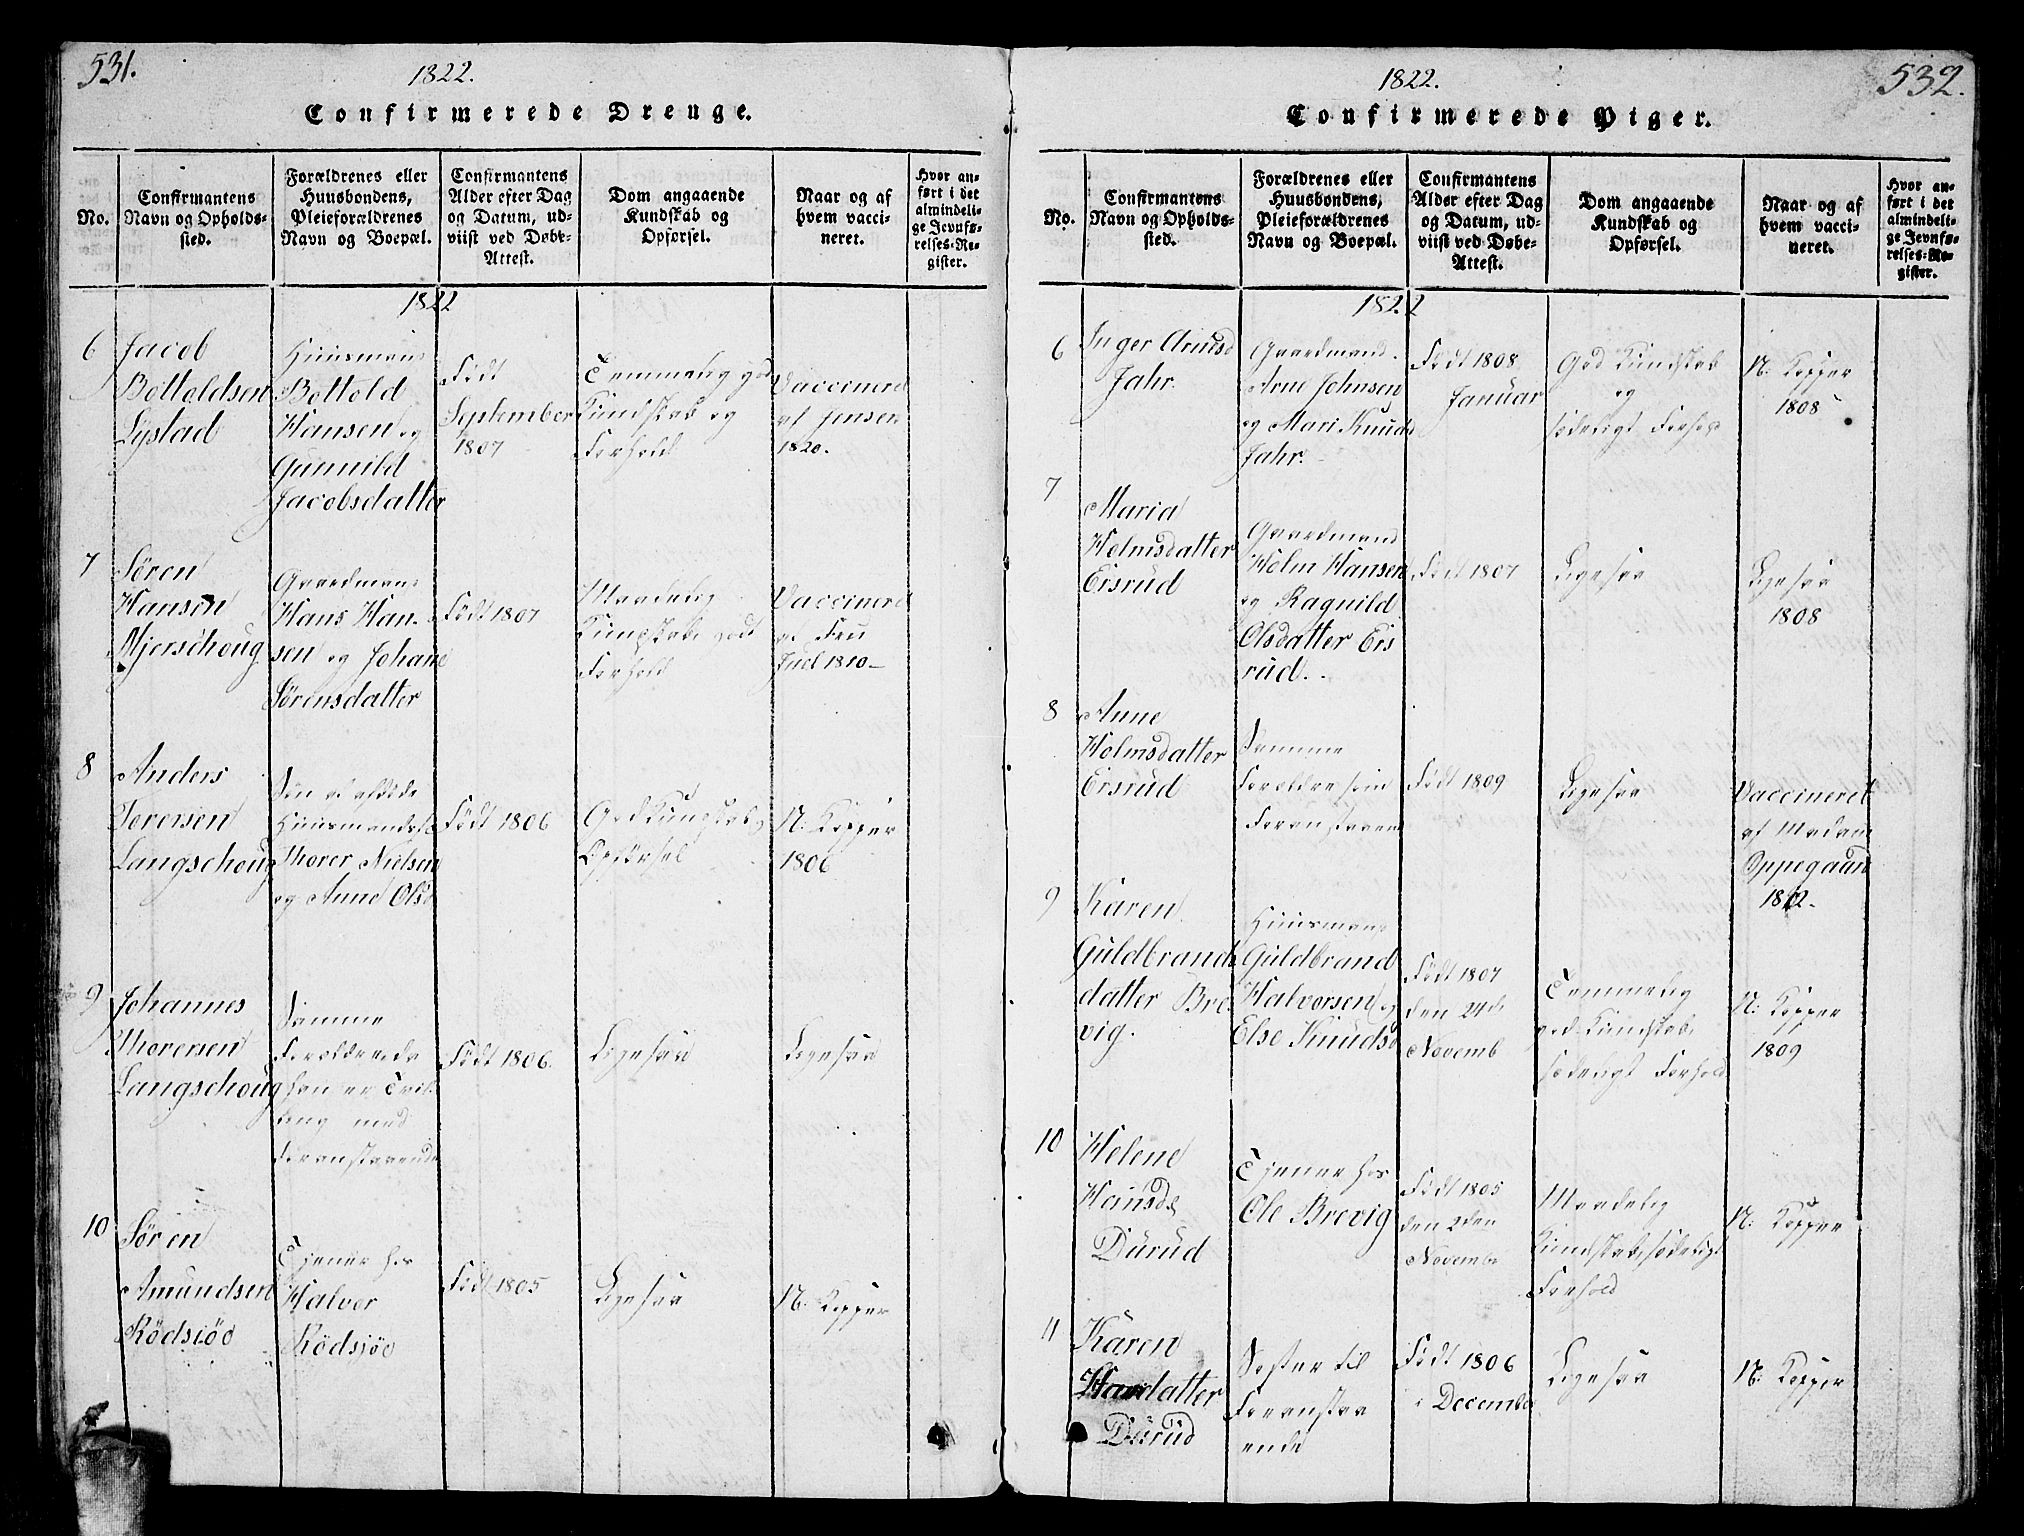 531.
1822.
Confirmerede Drenge.
No.
Confirmantens
Navn og Opholds-
sted.
Forældrenes eller
Huusbondens,
Pleieforældrenes
Navn og Boepæl.
Confirmantens
Alder efter Dag
og Datum, ud-
viist ved Døbe-
Attest.
Dom angaaende
Kundskab og
Opførsel.
Naar og af
hvem vacci-
neret.
Hvor an-
ført i det
almindeli-
ge Jevnfø-
relses-Re-
gister.
1822
6
Jacob
Bottoldsen
Lystad
Huusmand
Bottold
Hansen og
Gunnild
Jacobsdatter
Født
September
1807
Temmelig god
Kundskab og
Forhold
Vaccineret
af Jensen
1820.
7
Søren
Hansen
Mjerschoug
Gaardmand
Hans Han-
sen og Johane
Sørensdatter
Født 1807
Maadelig
Kundskab godt
Forhold
Vaccineret
af Fru
Juel 1810
8
Anders
Toresen
Langschoug
Søn af afdøde
Huusmand
Thorer Nielsen
og Anne Olsd
Født 1806
God Kundskab
Opførsel
N: Kopper
1806
9
Johannes
Thoresen
Langschoug
Samme
Forældre da
han er Tvil-
ling med
Foranstaaende
Født 1806.
Ligesaa
Ligesaa
10
Søren
Amundsen
Rödsiöe
Tjener hos
Halver
Rödsiöe
Født 1805
Ligesaa
N: Kopper
532.
1822.
Confirmerede Piger.
No.
Confirmantens
Navn og Opholds-
sted.
Forældrenes eller
Huusbondens,
Pleieforældrenes
Navn og Boepæl.
Confirmantens
Alder efter Dag
og Datum, ud-
viist ved Døbe-
Attest.
Dom angaaende
Kundskab og
Opførsel.
Naar og af
hvem vacci-
neret.
Hvor an-
ført i det
almindeli-
ge Jevnfø-
relses-Re-
gister.
1822
6
Inger Arnesd
Jahr.
Gaardmand
Arne Johnsen
og Mari Knuds
Jahr.
Født 1808
Januar
God Kundskab
og
sædeligt Forhold
N: Kopper
1808
7
Maria
Holmsdatter
Eisrud
Gaardmand
Holm Hansen
og Ragnild
Olsdatter Eis
rud.
Født 1807
Ligesaa
Ligesaa
1808
8
Anne
Holmsdatter
Eisrud
Samme
Forældre som
Foranstaaende
Født 1809
Ligesaa
Vaccineret
af Madam
Oppegaard
1812.
9
Karen
Guldbrands
datter Bre
vig.
Huusmand
Guldbrand
Halvorsen og
Else Knudsd
Født 1807
den 24de
Novemb
Temmelig
god Kundskab,
sædeligt Forhold
N: Kopper
1809
10
Helene
Hansd
Durud
Tjener hos
Ole Brevig
Født 1805
den 2den
Novembr
Maadelig
Kundskab, sædeligt
Forhold
N: Kopper
11
Karen
Handatter
Durud
Søster til
Foranstaa
ende
Født 1806
i December
Ligesaa
N: Kopper